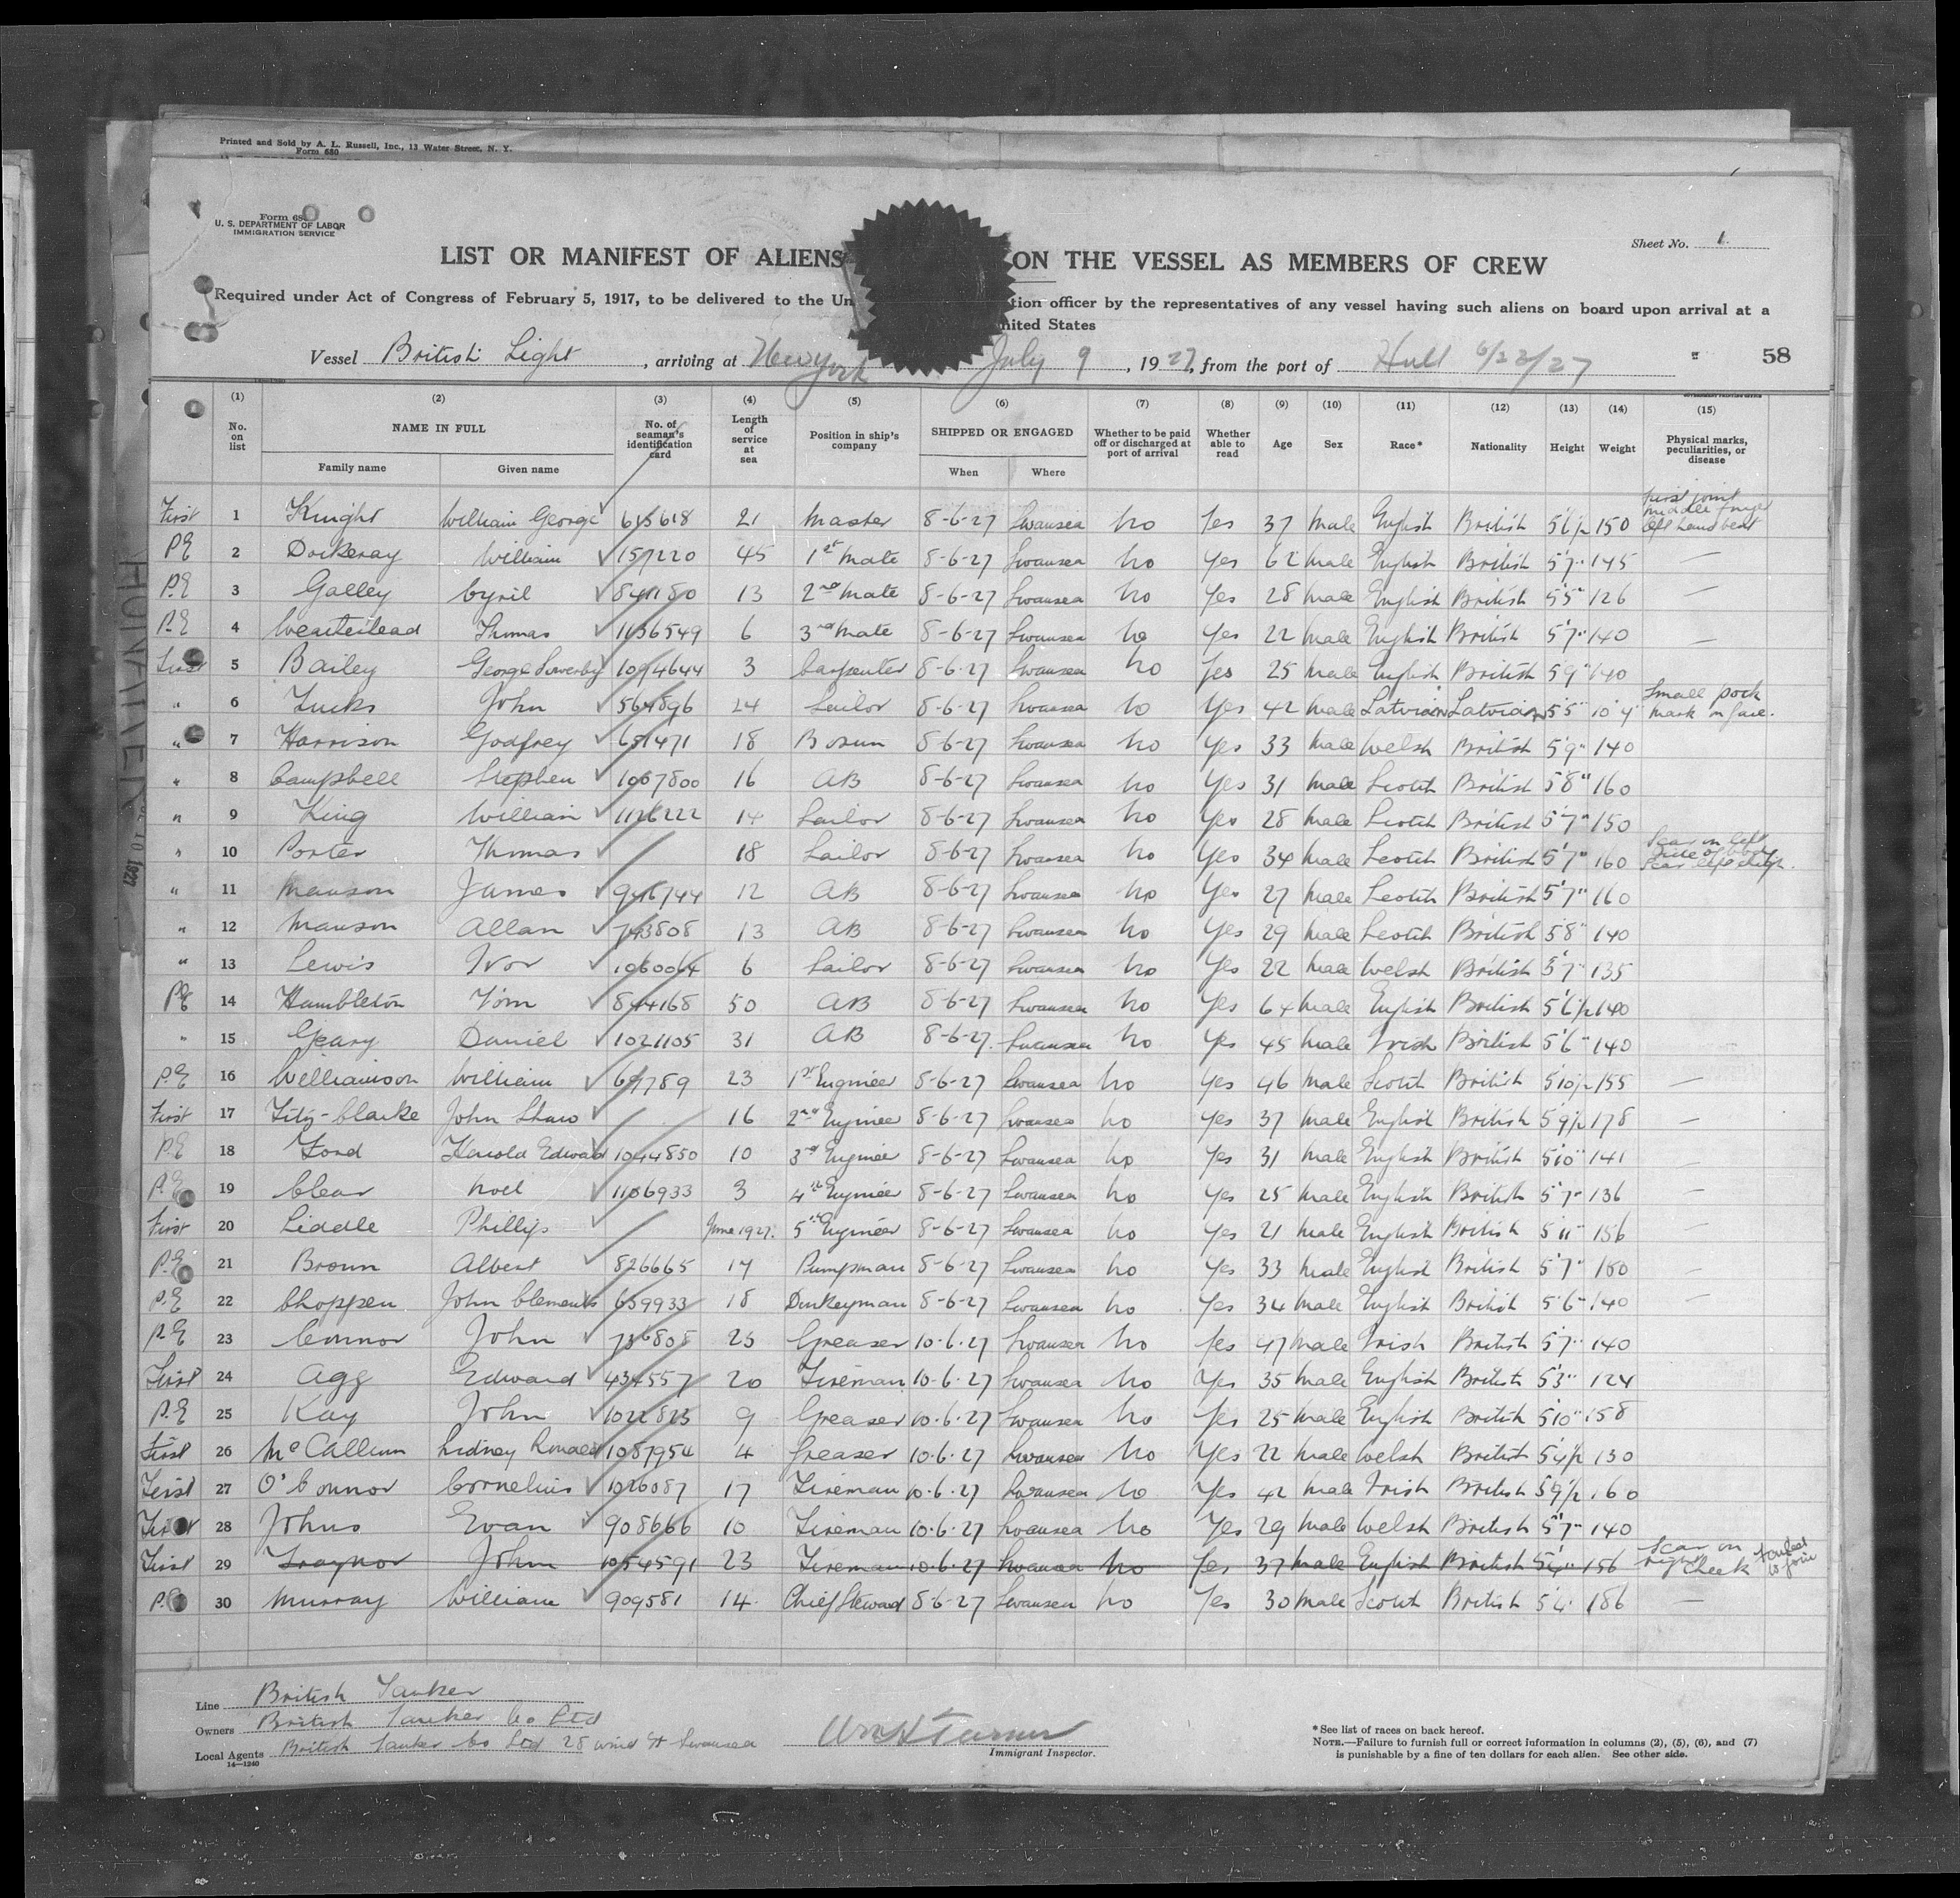 Printed and Sold by A. L. Russell, Inc., 13 Water Street, N. Y.
Form 680
Form 68
U. S. DEPARTMENT OF LABOR
IMMIGRATION SERVICE
Sheet No. 1
LIST OR MANIFEST OF ALIENS ON THE VESSEL AS MEMBERS OF CREW
Required under Act of Congress of February 5, 1917, to be delivered to the Un tion officer by the representatives of any vessel having such aliens on board upon arrival at a
nited States
Vessel British Light, arriving at New York July 9, 1927, from the port of Hull 6/23/27 58
(1) (2) (3) (4) (5) (6) (7) (8) (9) (10) (11) (12) (13) (14) (15)
No. on list NAME IN FULL Family name Given name No. of seaman's identification card Length of service at sea Position in ship's company SHIPPED OR ENGAGED When Where Whether to be paid off or discharged at port of arrival Whether able to read Age Sex Race* Nationality Height Weight Physical marks, peculiarities, or disease
First 1 Knight William George 615618 21 Master 8-6-27 Swansea No Yes 37 Male English British 5'6½ 150 First joint middle finger left hand bent
P.E 2 Dockeray William 157220 45 1st Mate 8-6-27 Swansea No Yes 62 Male English British 5'7" 145 —
P.E 3 Galley Cyril 841180 13 2nd Mate 8-6-27 Swansea No Yes 28 Male English British 5'5" 126 —
P.E 4 Thomas 1136549 6 3rd Mate 8-6-27 Swansea No Yes 22 Male English British 5'7" 140 —
First 5 Bailey George Sowerby 1094644 3 Carpenter 8-6-27 Swansea No Yes 25 Male English British 5'9" 140
" 6 John 564896 24 Sailor 8-6-27 Swansea No Yes 42 Male Latvian Latvian 5'5" Small pock mark on face.
" 7 Harrison Godfrey 681471 18 Bosun 8-6-27 Swansea No Yes 33 Male Welsh British 5'9" 140
" 8 Campbell Stephen 1067800 16 AB 8-6-27 Swansea No Yes 31 Male Scotch British 5'8" 160
" 9 King William 1126222 14 Sailor 8-6-27 Swansea No Yes 28 Male Scotch British 5'7" 150
" 10 Porter Thomas 18 Sailor 8-6-27 Swansea No Yes 34 Male Scotch British 5'7" 160 Scar on left side of body
" 11 Manson James 946744 12 AB 8-6-27 Swansea No Yes 27 Male Scotch British 5'7" 160
" 12 Manson Allan 743808 13 AB 8-6-27 Swansea No Yes 29 Male Scotch British 5'8" 140
" 13 Lewis Ivor 1060064 6 Sailor 8-6-27 Swansea No Yes 22 Male Welsh British 5'7" 135
P.E 14 Hambleton Tom 844168 50 AB 8-6-27 Swansea No Yes 64 Male English British 5'6½ 140
" 15 Geary Daniel 1021105 31 AB 8-6-27 Swansea No Yes 45 Male Irish British 5'6" 140
P.E 16 Williamson William 23 1st Engineer 8-6-27 Swansea No Yes 46 Male Scotch British 5'10½ 155 —
First 17 Fitz-Clarke John Shaw 16 2nd Engineer 8-6-27 Swansea No Yes 37 Male English British 5'9½ 178 —
P.E 18 Ford Harold Edward 1044850 10 3rd Engineer 8-6-27 Swansea No Yes 31 Male English British 5'10" 141 —
P.E 19 Clear Noel 1106933 3 4th Engineer 8-6-27 Swansea No Yes 25 Male English British 5'7" 136 —
First 20 Liddle Phillip June 1927. 5th Engineer 8-6-27 Swansea No Yes 21 Male English British 5'11" 156 —
P.E 21 Brown Albert 826665 14 Pumpman 8-6-27 Swansea No Yes 33 Male English British 5'7" 180 —
P.E 22 Choppen John Clements 659933 18 Donkeyman 8-6-27 Swansea No Yes 34 Male English British 5'6" 140 —
P.E 23 Connor John 736808 25 Greaser 10-6-27 Swansea No Yes 47 Male Irish British 5'7" 140
First 24 Agg Edward 434557 20 Fireman 10-6-27 Swansea No Yes 35 Male English British 5'3" 124
P.E 25 Kay John 1022823 9 Greaser 10-6-27 Swansea No Yes 25 Male English British 5'10" 158
First 26 McCallum Sidney Ronald 1087954 4 Greaser 10-6-27 Swansea No Yes 22 Male Welsh British 5'4½ 130
First 27 O'Connor Cornelius 1026087 17 Fireman 10-6-27 Swansea No Yes 42 Male Irish British 5'9½ 160
First 28 Johns Evan 908666 10 Fireman 10-6-27 Swansea No Yes 29 Male Welsh British 5'7" 140
First 29 Traynor John 1054591 23 Fireman 10-6-27 Swansea No Yes 37 Male English British 5'4" 156 Scar on right cheek Failed to join
P.E 30 Murray William 909581 14 Chief Steward 8-6-27 Swansea No Yes 30 Male Scotch British 5'4" 186 —
Line British Tanker
Owners British Tanker Co Ltd
Local Agents British Tanker Co Ltd 28 Wind St Swansea
14—1240
Wm H Turner
Immigrant Inspector.
*See list of races on back hereof.
NOTE.—Failure to furnish full or correct information in columns (2), (5), (6), and (7)
is punishable by a fine of ten dollars for each alien. See other side.